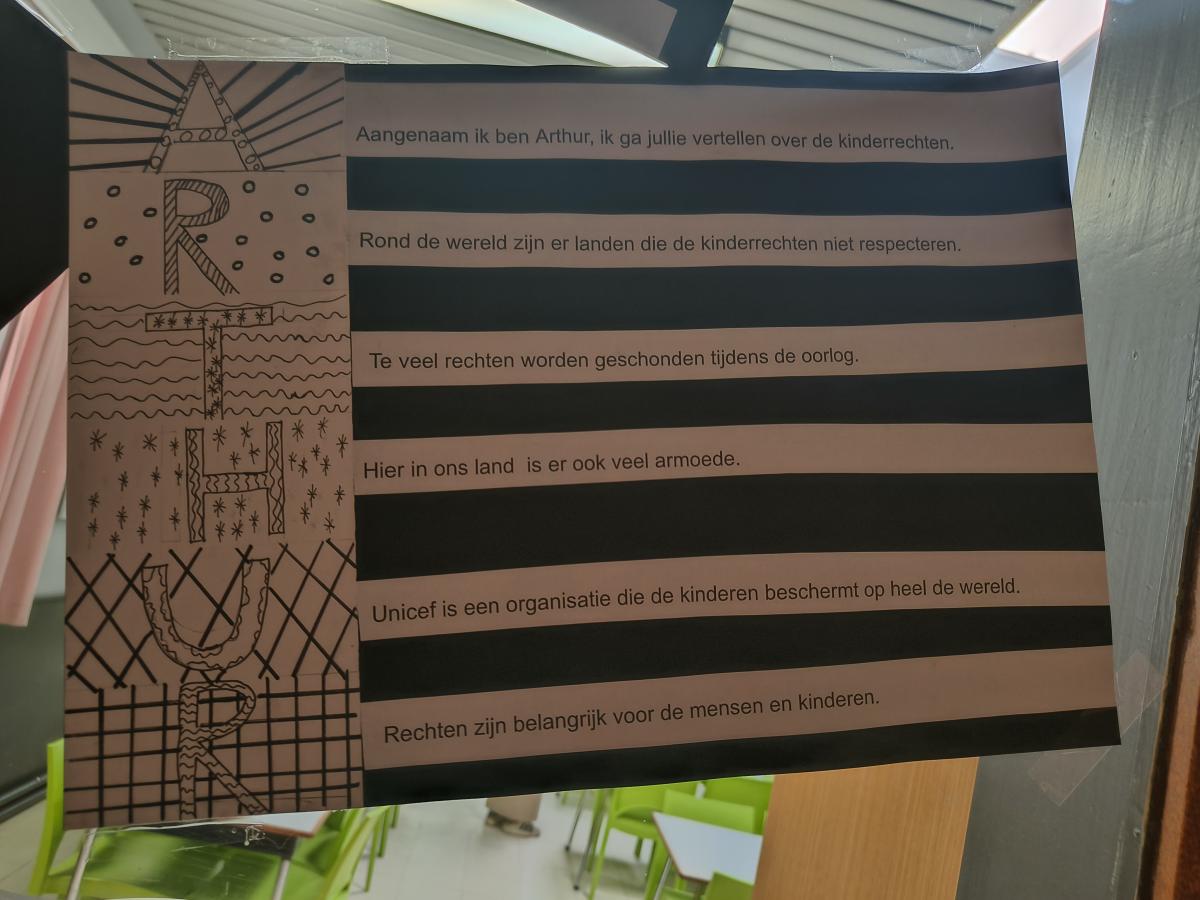 A
Aangenaam ik ben Arthur, ik ga jullie vertellen over de kinderrechten.
R
Rond de wereld zijn er landen die de kinderrechten niet respecteren.
T
Te veel rechten worden geschonden tijdens de oorlog.
H
Hier in ons land  is er ook veel armoede.
U
Unicef is een organisatie die de kinderen beschermt op heel de wereld.
R
Rechten zijn belangrijk voor de mensen en kinderen.